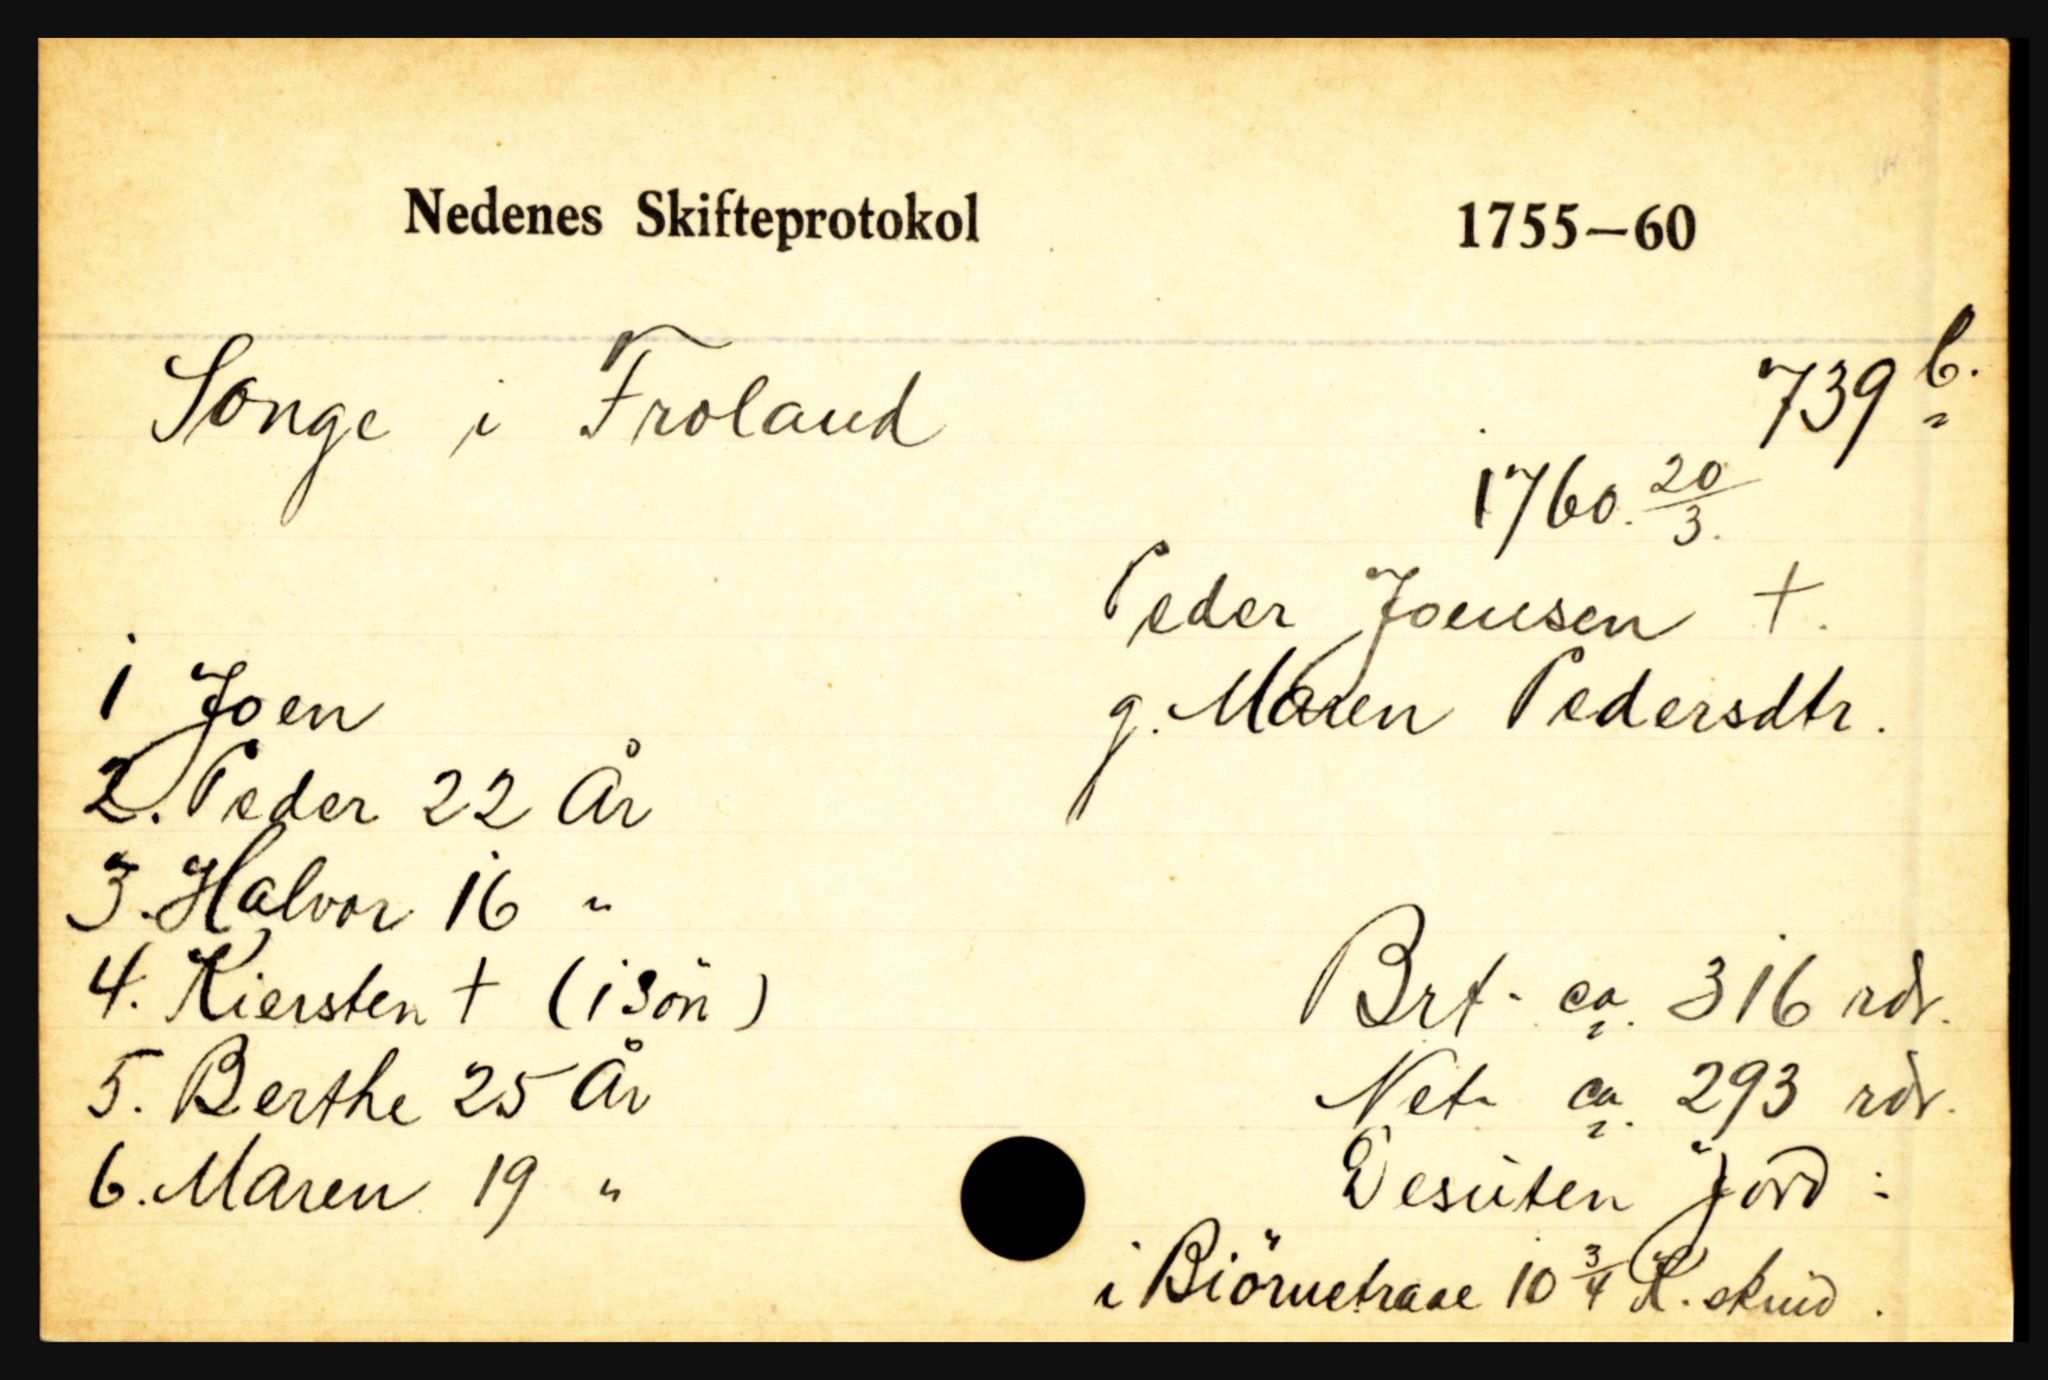 Nedenes Skifteprotokol 1755—60
Songe i Froland 739 b.
1760. 20/3.
Peder Joensen +.
g. Maren Pedersdtr.
1 Joen
2. Peder 22 År
3. Halvor 16 "
4. Kiersten + (1 sön)
5. Berthe 25 År
6. Maren 19 "
Brt. ca. 316 rdr.
Net. ca. 293 rdr.
Desuten Jord:
i Biörnetraae 10 3/4 K. skind.